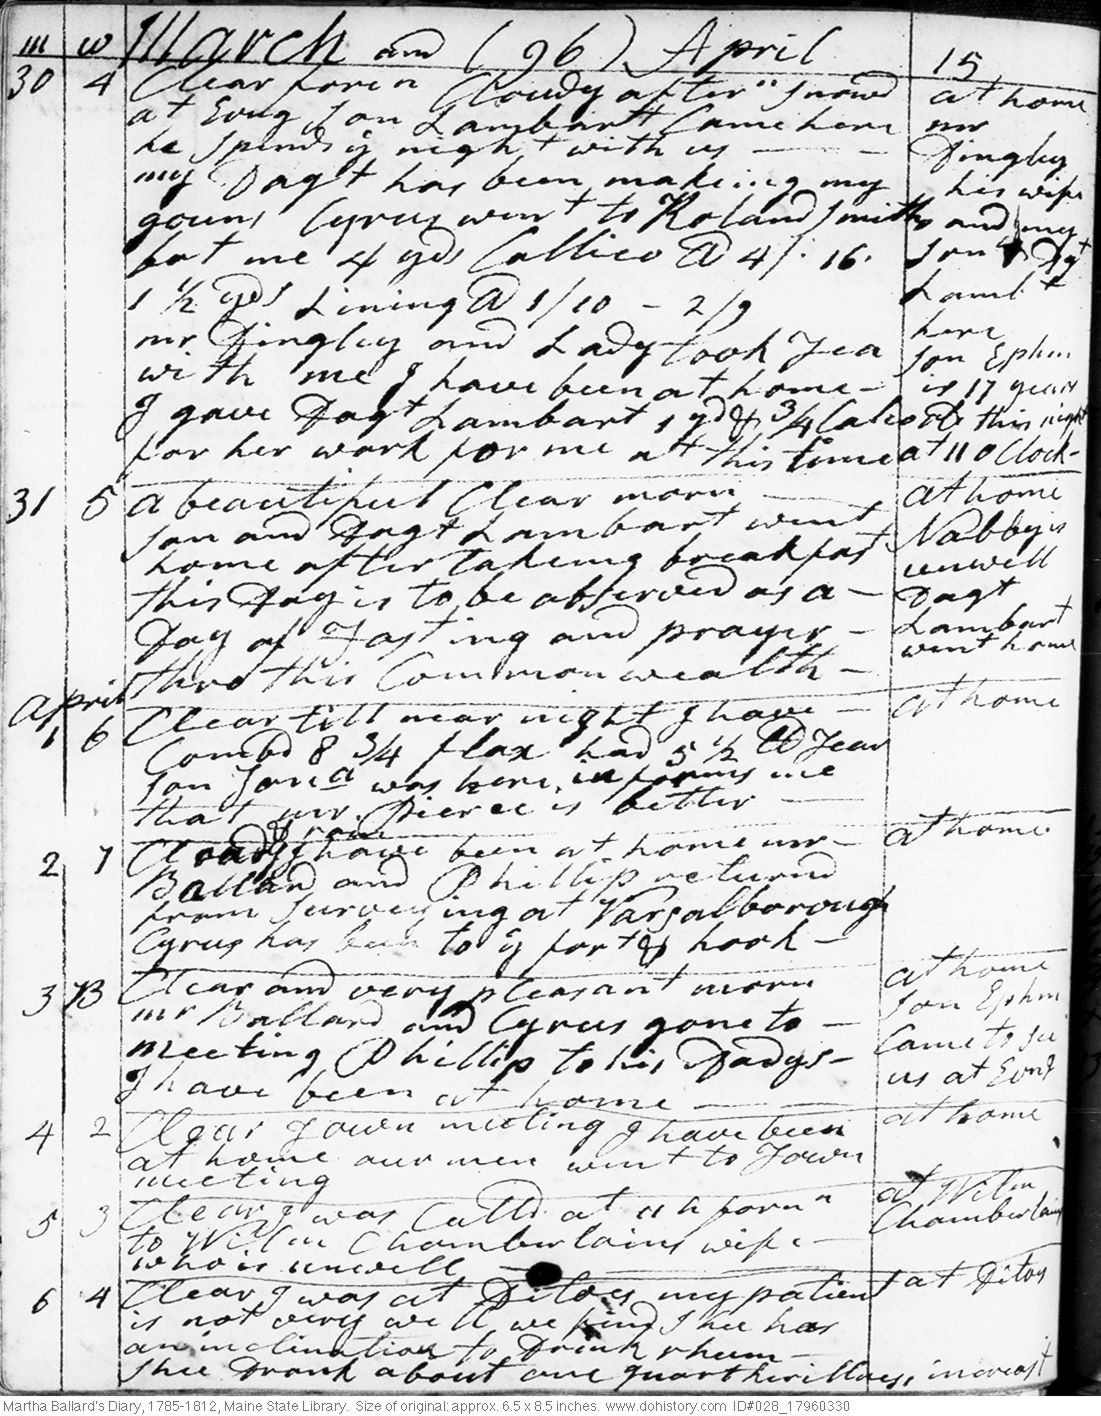 m w March and (96) April 15
30 4 Clear foren Cloudy aftern snowd
at Evng Son Lambart Came here
he spends ye night with us —
my Dagt has been makeing my
gouns Cyrus went to Roland Smiths
bot me 4 yds Callico @ 4/. 16.
1 1/2 yds Lining @ 1/10 - 2/9
mr Dingley and Lady took Tea
with me I have been at home -
I gave Dagt Lambart 1 yd & 3/4 Calico
for her work for me at this time
at home
mr
Dingley
his wife
and my
Son & Dagt
Lambt
here
Son Ephm
is 17 years
old this night
at 11 O Clock -
31 5 a beautifull Clear morn —
Son and Dagt Lambart went
home after takeing breakfast
this Day is to be observed as a -
Day of Fasting and prayer -
thro this Common wealth -
at home
Nabby is
unwell
Dagt
Lambart
went home
April
1 6 Clear till near night I have -
Combd 8 3/4 flax had 5 1/2 lb Tear
Son Jona was here, informs me
that mr Pierce is better —
at home
2 7 Cloudy & rain I have been at home mr -
Ballard and Phillip returnd
from surveying at Varsalborough
Cyrus has been to ye fort & hook -
at home
3 B Clear and very pleasant morn
mr Ballard and Cyrus gone to -
meeting Phillip to his Dadys -
I have been at home —
at home
Son Ephm
Came to see
us at Evng
4 2 Clear Town meeting I have been
at home our men went to Town
meeting
at home
5 3 Clear I was Calld at 11 h forn
to Wilm Chamberlains wife -
who is unwell —
at Wilm
Chamberlains
6 4 Clear I was at Ditoes my patient
is not very well we find Shee has
an inclination to Drink rhum —
Shee Drank about one quart her illness increast
at Ditos
Martha Ballard's Diary, 1785-1812, Maine State Library. Size of original: approx. 6.5 x 8.5 inches. www.dohistory.com ID#028_17960330